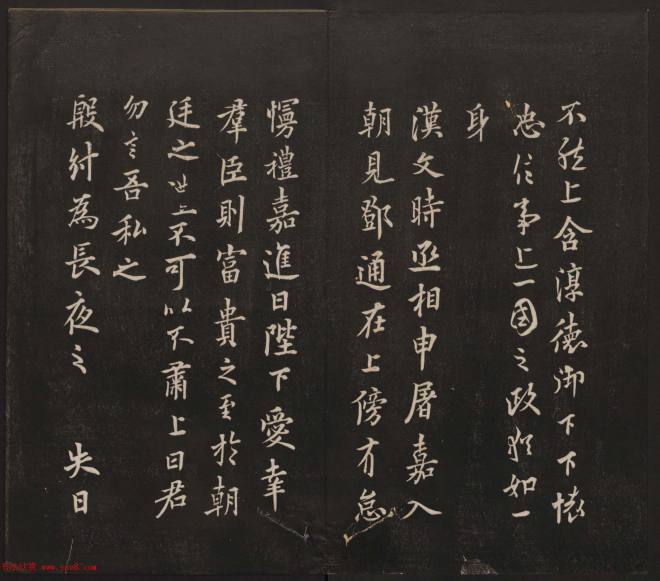 不然上含淳德御下下懷
忠信事上一國之政猶如一
身
漢文時丞相申屠嘉入
朝見鄧通在上傍有怠
慢禮嘉進曰陛下愛幸
羣臣則富貴之至於朝
廷之世上不可以不肅上曰君
勿言吾私之
殷紂為長夜之 失日
www.yac8.com